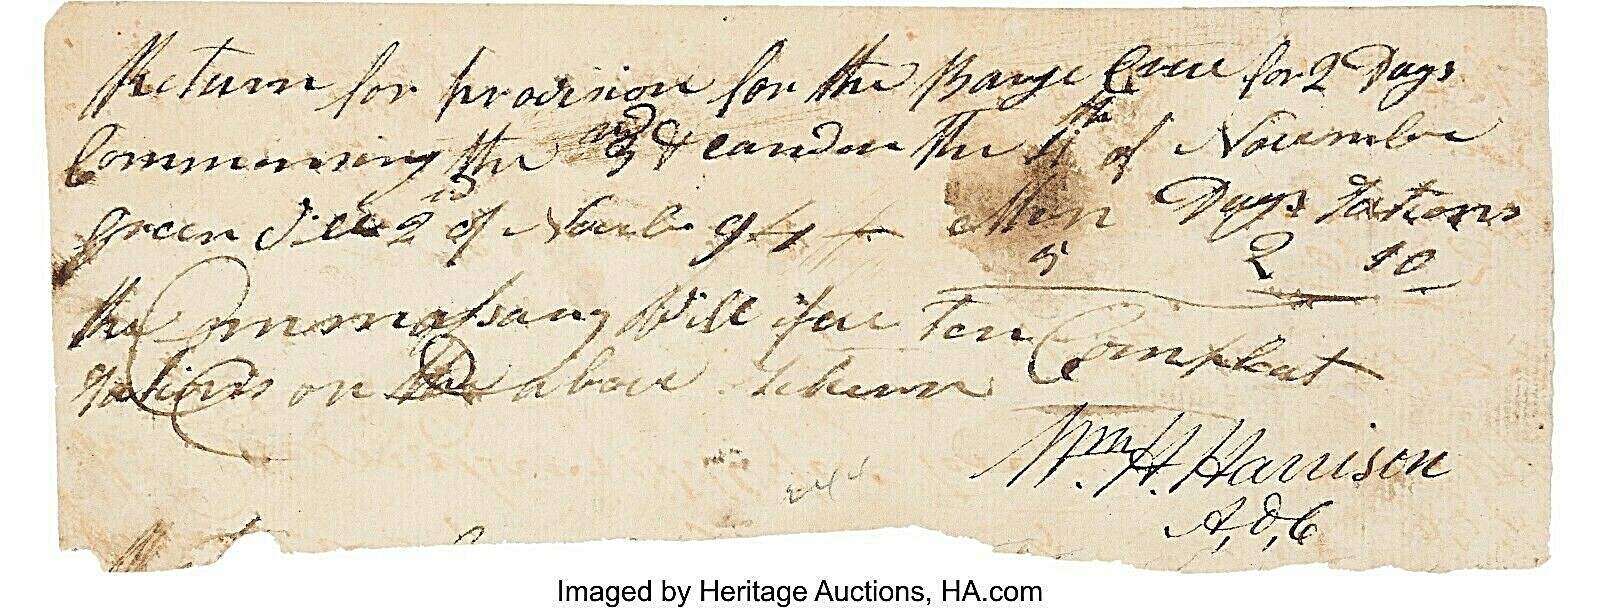 Return for provision for the Barge Crew for 2 Days
Commensing the 3 & eand on the 4th of November
green vill 2d of Novmb. 94 Men Days Rations
5 2 10
the Commassary Will isue Ten Compleat
Rations on the above Return
Wm. H. Harrison
A, d, C
Imaged by Heritage Auctions, HA.com